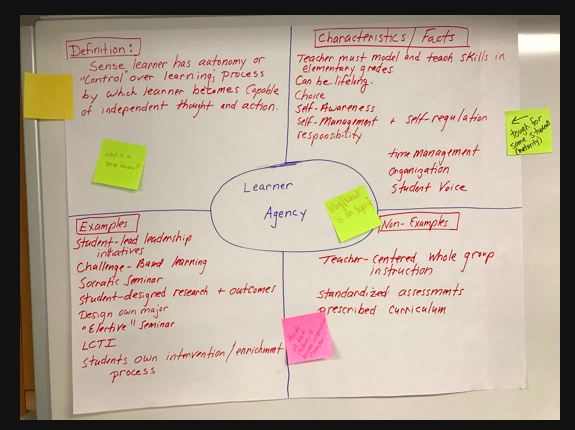 Definition:
Sense learner has autonomy or
"control" over learning; process
by which learner becomes capable
of independent thought and action.
Characteristics / Facts
Teacher must model and teach skills in
elementary grades.
Can be lifelong.
Choice
Self-Awareness
Self-Management + self-regulation
responsibility
time management
organization
Student Voice
← tough for
some students
(maturity)
What is a
Learner
Agency
Examples
Student-lead leadership
initiatives
Challenge-Based learning
Socratic Seminar
Student-designed research + outcomes
Design own major
"Elective" Seminar
LCTI
Students own intervention/enrichment
process
Non-Examples
Teacher-Centered whole group
instruction
standardized assessmnts
prescribed curriculum